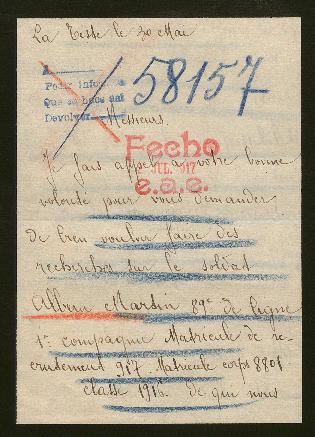 La le 30 Mai
A
Para infor a
Que se hace así
Devolver
58157
Messieurs.
Fecho
JUL. 917
e.a.e.
Je fais appel a votre bonne
volonté pour vous demander
de bien vouloir faire des
recherches sur le soldat
Martin 89e de ligne
1e compagnie Matricule de re-
crutement 917. Matricule corps 8801
classe 1916. de qui nous